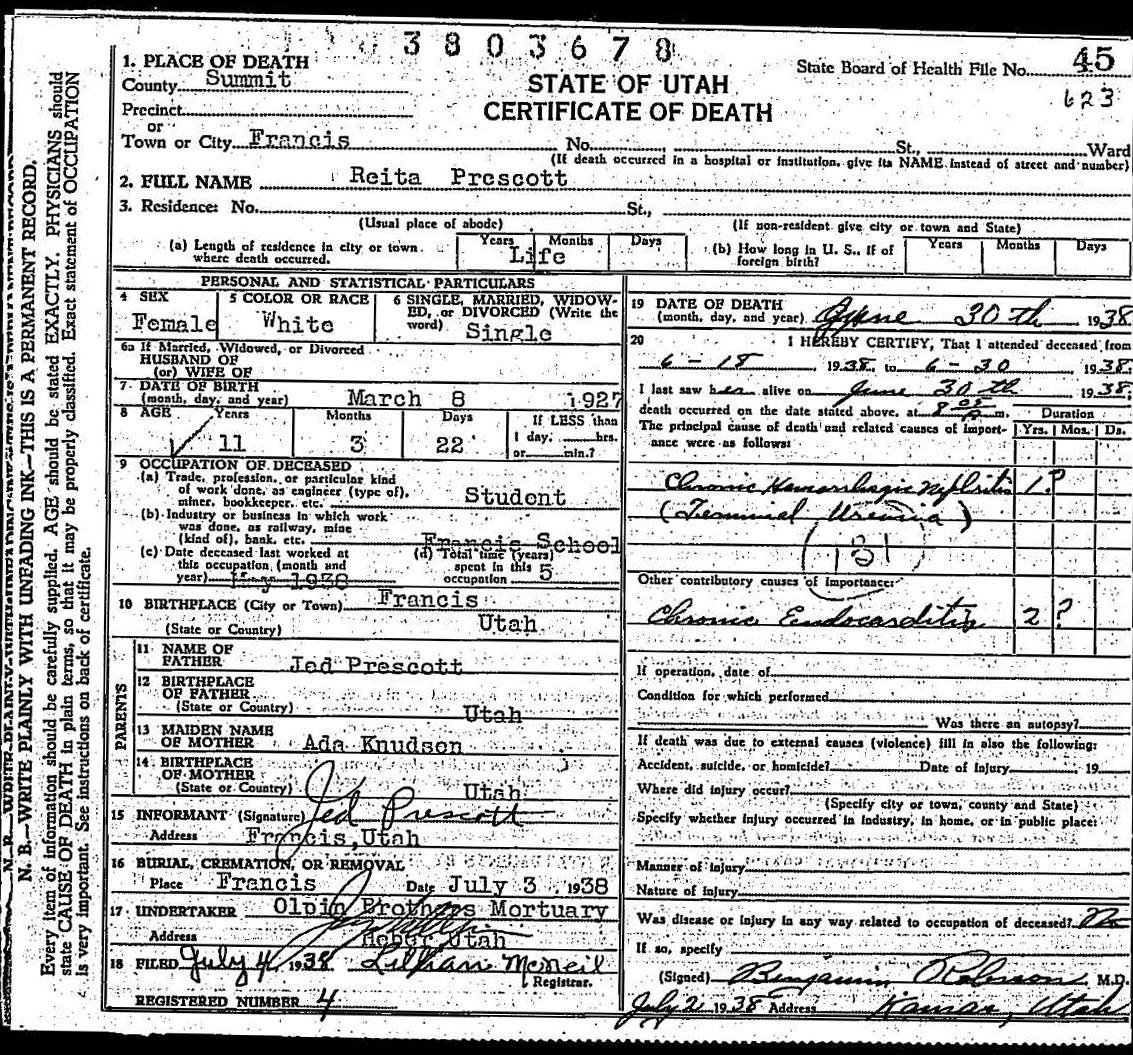 3803678
45
State Board of Health File No.
623
STATE OF UTAH
CERTIFICATE OF DEATH
1. PLACE OF DEATH
County Summit
Precinct
or
Town or City Francis No. St., Ward
(If death occurred in a hospital or institution, give its NAME instead of street and number)
2. FULL NAME Reita Prescott
3. Residence: No. St.,
(Usual place of abode) (If non-resident give city or town and State)
(a) Length of residence in city or town where death occurred. Years Months Days
Life
(b) How long in U. S., if of foreign birth? Years Months Days
PERSONAL AND STATISTICAL PARTICULARS
4 SEX
Female
5 COLOR OR RACE
White
6 SINGLE, MARRIED, WIDOW-
ED, or DIVORCED (Write the
word) Single
6a If Married, Widowed, or Divorced
HUSBAND OF
(or) WIFE OF
7 DATE OF BIRTH
(month, day, and year) March 8 1927
8 AGE Years Months Days If LESS than
11 3 22 1 day, hrs.
or min.?
9 OCCUPATION OF DECEASED
(a) Trade, profession, or particular kind
of work done, as engineer (type of),
miner, bookkeeper, etc. Student
(b) Industry or business in which work
was done, as railway, mine
(kind of), bank, etc. Francis School
(c) Date deceased last worked at
this occupation (month and
year) May 1938
(d) Total time (years)
spent in this
occupation 5
10 BIRTHPLACE (City or Town) Francis
(State or Country) Utah
PARENTS
11 NAME OF
FATHER Jed Prescott
12 BIRTHPLACE
OF FATHER
(State or Country) Utah
13 MAIDEN NAME
OF MOTHER Ada Knudson
14 BIRTHPLACE
OF MOTHER
(State or Country) Utah
15 INFORMANT (Signature) Jed Prescott
Address Francis, Utah
16 BURIAL, CREMATION, OR REMOVAL
Place Francis Date July 3 1938
17 UNDERTAKER Olpin Brothers Mortuary
Address Heber Utah
18 FILED July 4 1938 Lillian McNeil
Registrar.
REGISTERED NUMBER 4
19 DATE OF DEATH
(month, day, and year) June 30th 1938
20 I HEREBY CERTIFY, That I attended deceased from
6-18 1938 to 6-30 1938
I last saw her alive on June 30th 1938
death occurred on the date stated above, at 8 05 P m.
Duration
The principal cause of death and related causes of import-
ance were as follows: Yrs. Mos. Ds.
Chronic Hemorrhagic Nephritis 1 ?
(Terminal Uremia)
(131)
Other contributory causes of importance:
Chronic Endocarditis 2 ?
If operation, date of
Condition for which performed
Was there an autopsy?
If death was due to external causes (violence) fill in also the following:
Accident, suicide, or homicide? Date of Injury 19
Where did injury occur?
(Specify city or town, county and State)
Specify whether injury occurred in industry, in home, or in public place:
Manner of injury
Nature of injury
Was disease or injury in any way related to occupation of deceased? No
If so, specify
(Signed) Benjamin Robison M.D.
July 2 1938 Address Kamas, Utah
N. B.—WRITE PLAINLY WITH UNFADING INK—THIS IS A PERMANENT RECORD.
Every item of information should be carefully supplied. AGE should be stated EXACTLY. PHYSICIANS should
state CAUSE OF DEATH in plain terms, so that it may be properly classified. Exact statement of OCCUPATION
is very important. See instructions on back of certificate.